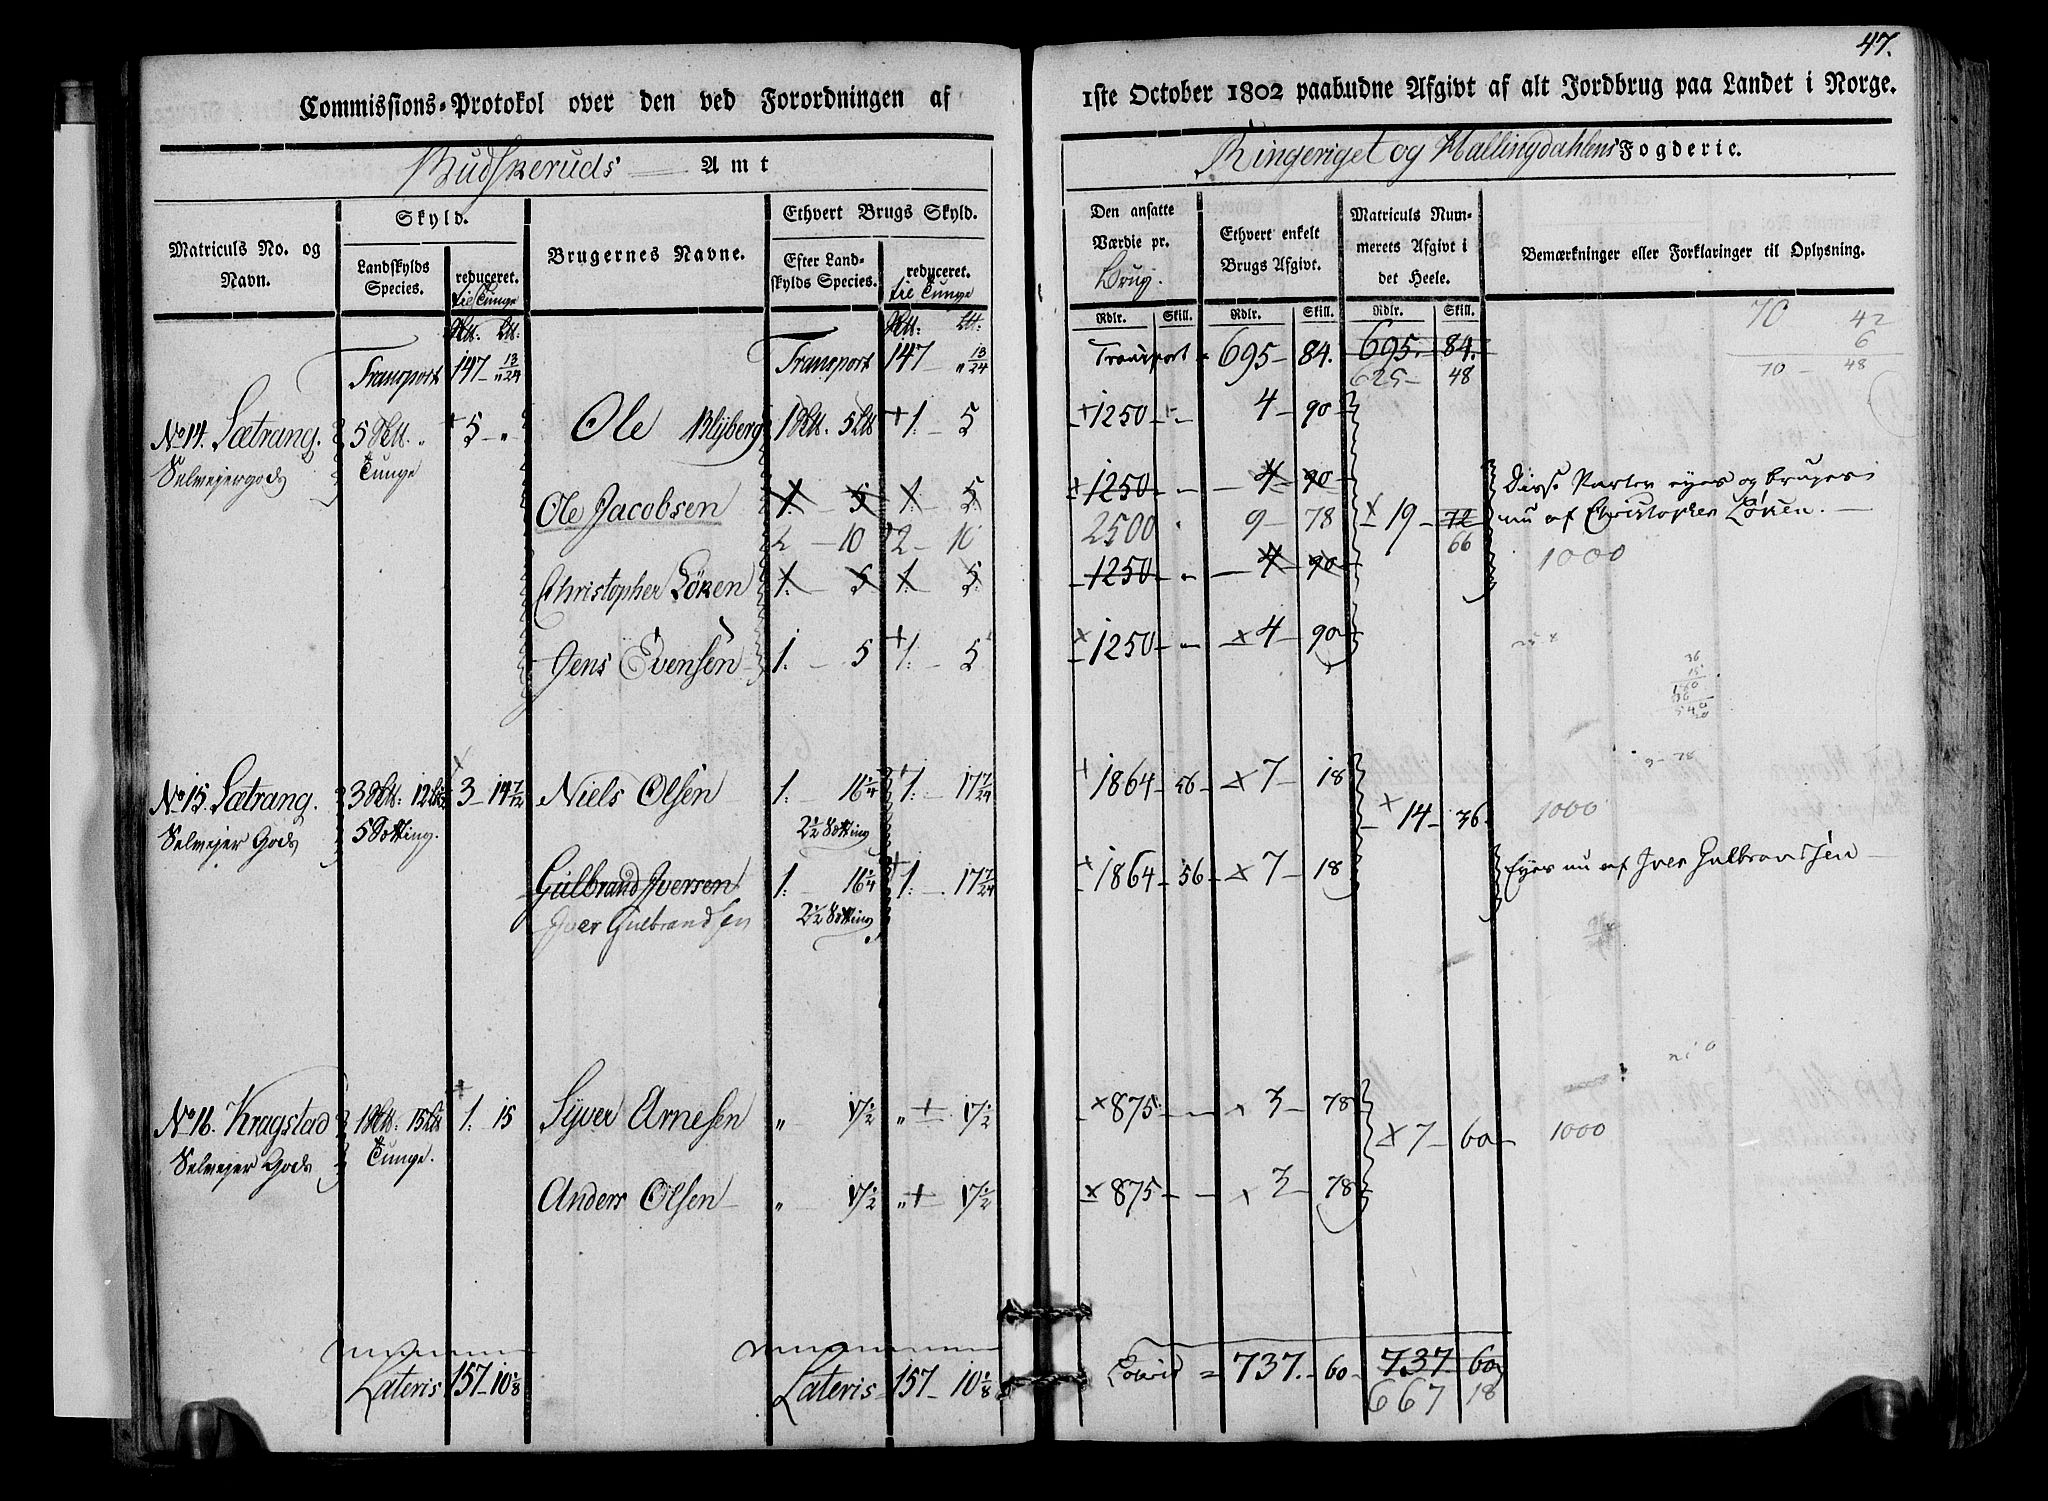 47.
Commissions-Protokol over den ved Forordningen af 1ste October 1802 paabudne Afgivt af alt Jordbrug paa Landet i Norge.
Budskeruds Amt
Ringeriget og Hallingdahlens Fogderie.
Matriculs No. og Navn.
Skyld.
Landskylds Species.
reduceret. til Tunge
Brugernes Navne.
Ethvert Brugs Skyld.
Efter Landskylds Species.
reduceret. til Tunge
Den ansatte Værdie pr. Brug.
Ethvert enkelt Brugs Afgivt.
Matriculs Nummerets Afgivt i det Heele.
Bemærkninger eller Forklaringer til Oplysning.
Rdlr. Skill. Rdlr. Skill. Rdlr. Skill.
Transport 147 - " 13/24 Transport 147 - " 13/24 Transport 695 - 84. 695. 84.
625 - 48
70 42
6
70 - 48
No 14. Sætrang. 5 " + 5 - " Ole Blyberg 1 5 + 1: - 5 + 1250 - - 4 - 90
Selvejergods Tunge
Ole Jacobsen 1. 5 1. 5 1250 - - 4 - 90 Disse Parter eyes og bruges
2 - 10 2 - 10 2500 9 - 78 19 - 72 nu af Christopher Løken.
66
Christopher Löken 1. 5 1. 5 1250 - - 4 - 90 1000
Jens Evensen 1. - 5 1: - 5 1250 - - 4 - 90
No 15. Sætrang. 3 12 3 - 14 7/12 Niels Olsen 1. - 16 1/4 1. - 17 7/24 1864 - 56 - 7 - 18
Selvejer Gods 5 Sætting. 2 1/2 Sætting 14 - 36. 1000
Gulbrand Iversen 1. - 16 1/4 1. - 17 7/24 1864 - 56 - 7 - 18 Eyes nu af Iver Gulbrandsen
Iver Gulbrandsen 2 1/2 Sætting
No 16. Kragstad 1 15 1. 15 Syver Arnesen " 17 1/2 " 17 1/2 875 - - 3 - 78
Selvejer Gods Tunge. 7 - 60 1000
Anders Olsen " 17 1/2 " 17 1/2 875 - - 3 - 78
Lateris 157 - 10 1/8 Lateris 157 - 10 1/8 Lateris = 737. - 60 - 737 - 60
667 18